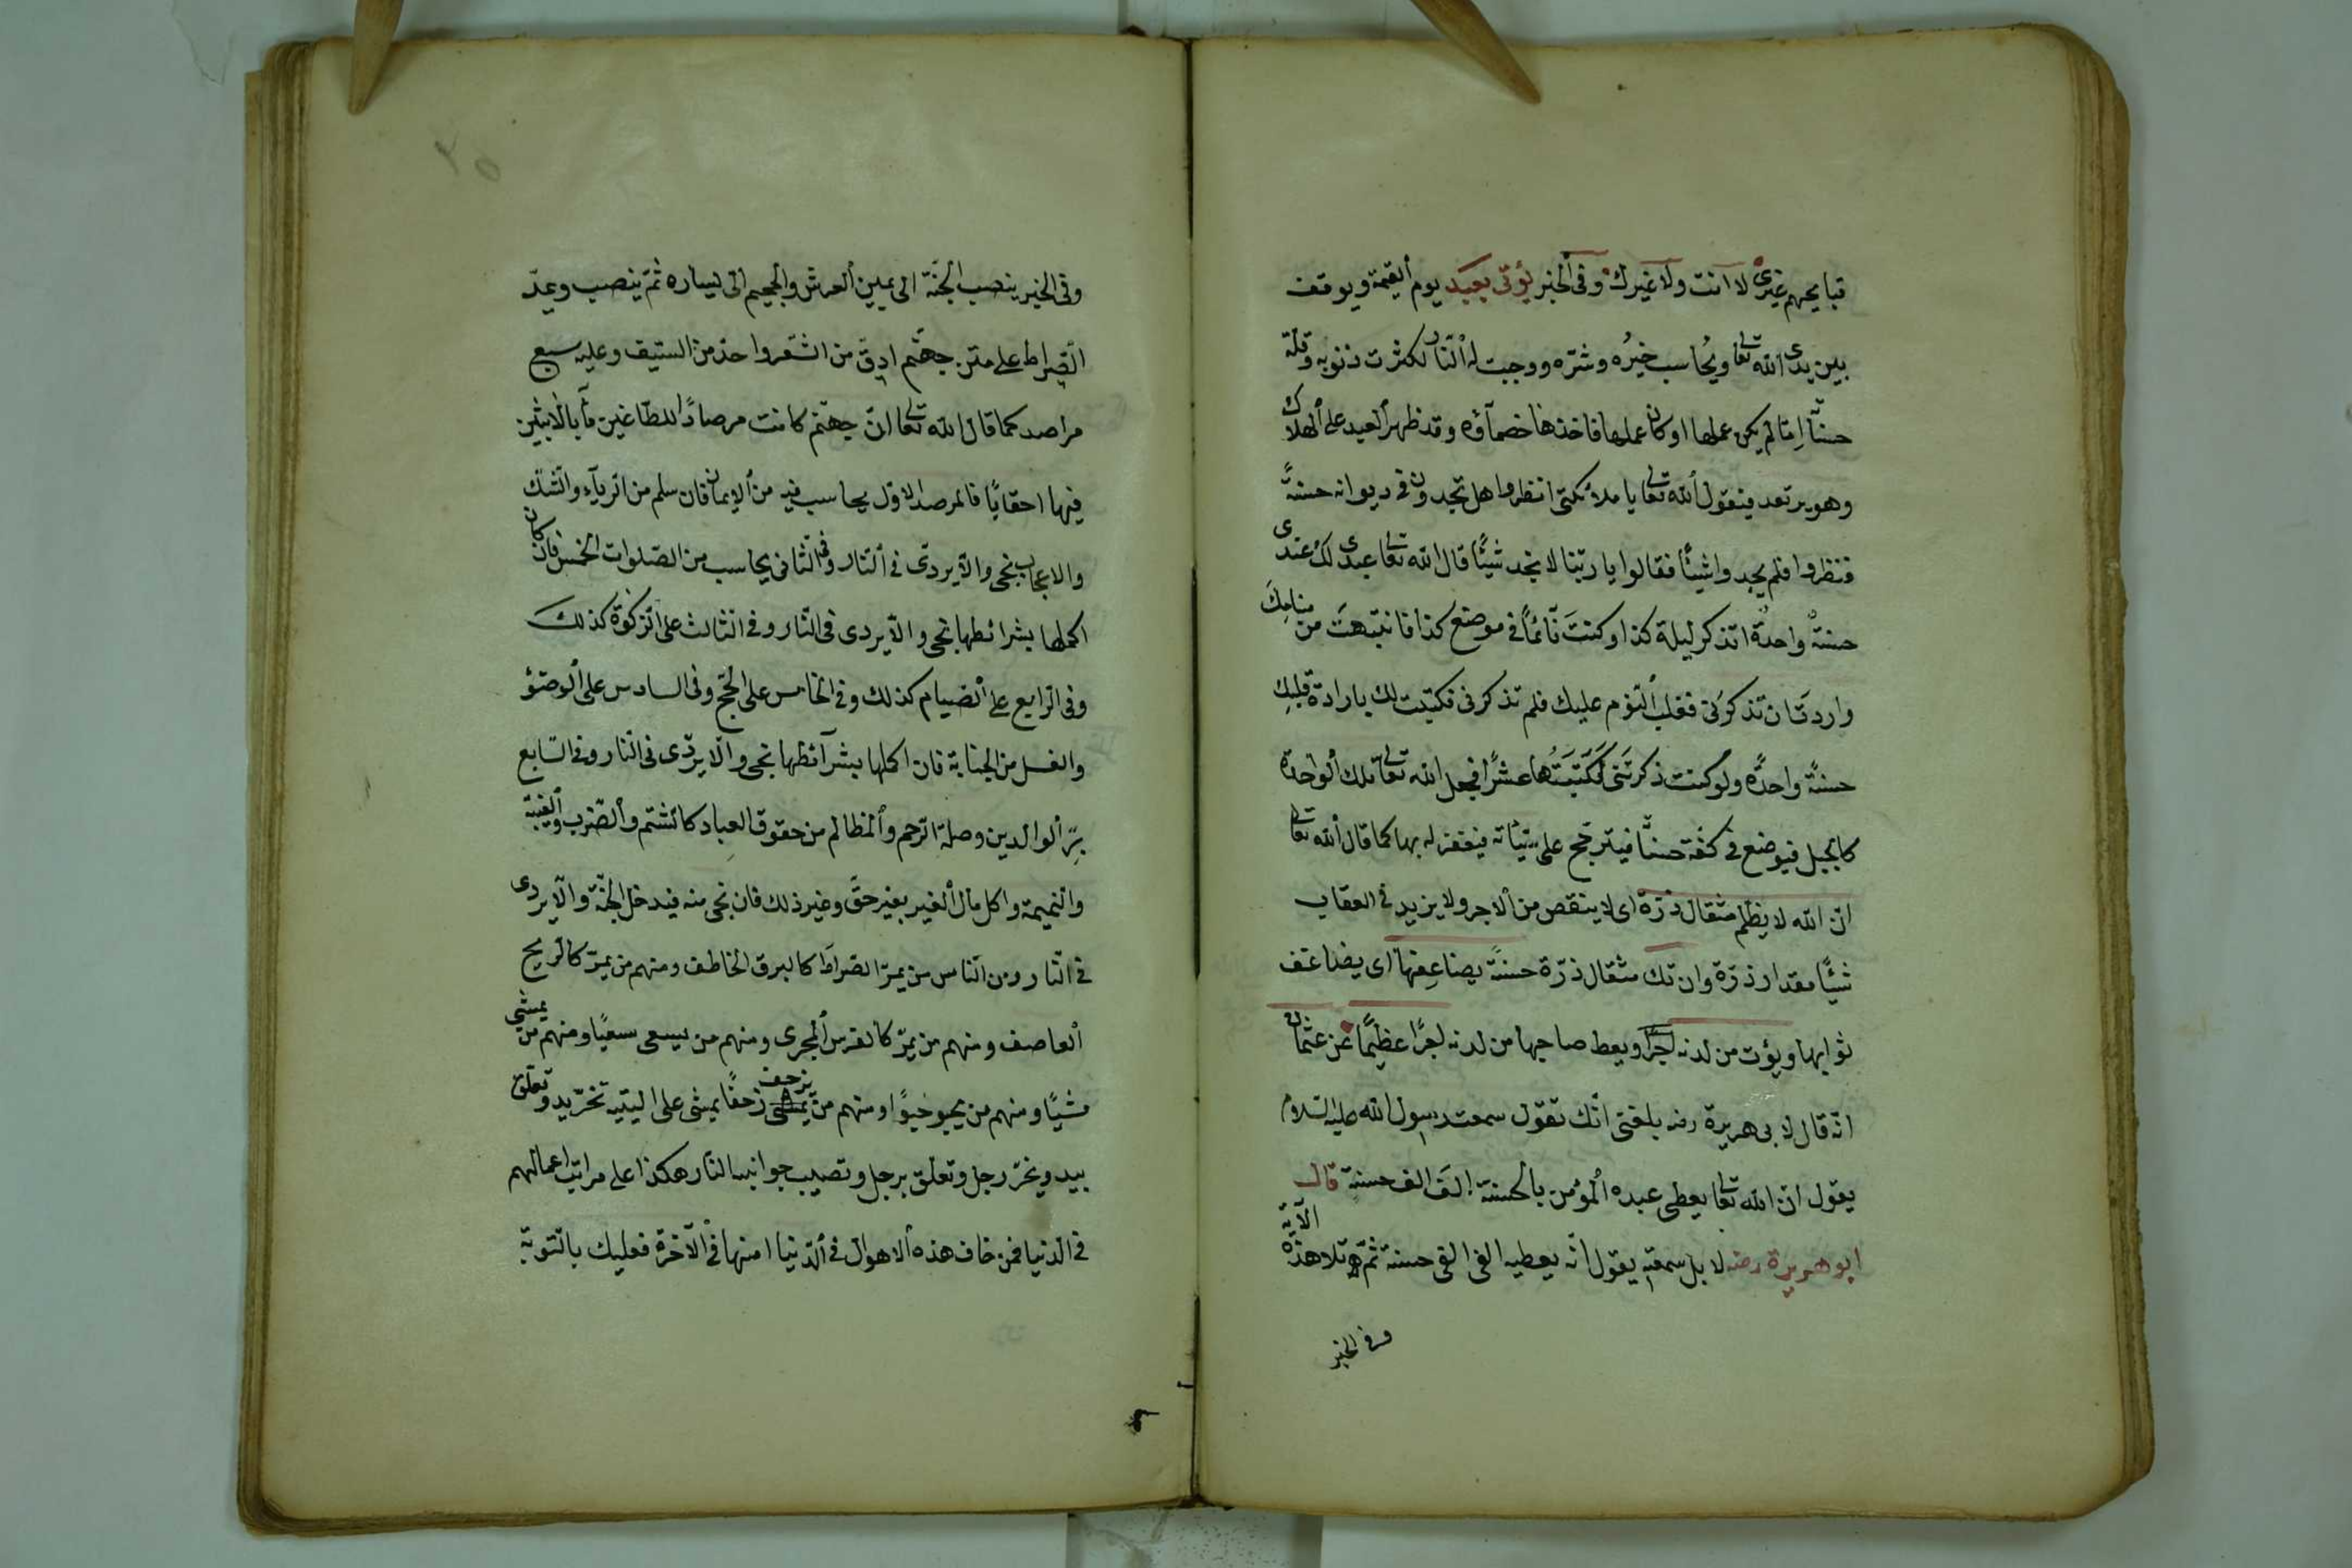 قبايحهم غيرى لا انت ولا غيرك وفى الخبر يؤتى بعبد يوم القيمة ويوقف
بين يدى الله تعا ويحاسب خيره وشره ووجبت له النار لكثرت ذنوبه وقلة
حسناً اما لم يكن عملها او كان عملها فاخذها خصمآؤه وقد ظهر العبد على الهلاك
وهو يرتعد فيقول الله تعا يا ملائكتى انظروا هل تجدون فى ديوانه حسنةً
فنظروا فلم يجدوا شيئًا فقالوا يا ربنا لا نجد شيئًا قال الله تعا عبدى لك عندى
حسنةٌ واحدةٌ اتذكر ليلة كذا وكنتَ نآئماً فى موضع كذا فانتبهتَ من منامكَ
واردتَ ان تذكرنى فغلب النوم عليك فلم تذكرنى فكتبت لك بارادة قلبك
حسنةً واحدةً ولو كنت ذكرتنى لكتبتُها عشرًا فيجعل الله تعا تلك الواحدة
كالجبل فيوضع فى كفة حسناً فيترجح على سيئاته فيغفر له بها كما قال الله تعا
ان الله لا يظلم مثقال ذرة اى لا ينقص من الاجر ولا يزيد فى العقاب
شيئًا مقدار ذرة وان تك مثقال ذرة حسنةً يضاعفها اى يضاعف
ثوابها ويؤت من لدنه اجرًا ويعط صاحبها من لدنه اجرًا عظيمًا عن عثمان
انه قال لابى هريرة رضه بلغنى انك تقول سمعت رسول الله عليه السلام
يقول ان الله تعا يعطى عبده المؤمن بالحسنة الفَ الف حسنةٍ قال
ابو هريرة رضه لا بل سمعته يقول انه يعطيه الفى الفى حسنة ثم تلا هذه الآية
وفى الخبر
٢٥
وفى الخبر ينصب الجنة الى يمين العرش والجحيم الى يساره ثم ينصب ويمد
الصراط على متن جهنم ادق من الشعر واحد من السيف وعليه سبع
مراصد كما قال الله تعا ان جهنم كانت مرصادًا للطاغين مآبا لابثين
فيها احقابًا فالمرصد الاول يحاسب فيه من الايمان فان سلم من الريآء والشك
والاعجاب نجى والا يردى فى النار وفى الثانى يحاسب من الصلوات الخمس فان كان
اكملها بشرائطها نجى والا يردى فى النار وفى الثالث على الزكوة كذلك
وفى الرابع على الصيام كذلك وفى الخامس على الحج وفى السادس على الوضؤ
والغسل من الجنابة فان اكملها بشرآئطها نجى والا يردى فى النار وفى السابع
بر الوالدين وصلة الرحم والمظالم من حقوق العباد كالشتم والضرب والغيبة
والنميمة واكل مال الغير بغير حق وغير ذلك فان نجى منه فيدخل الجنة والا يردى
فى النار ومن الناس من يمر الصراط كالبرق الخاطف ومنهم من يمر كالريح
العاصف ومنهم من يمر كالفرس المجرى ومنهم من يسعى سعيًا ومنهم من يمشى
مشيًا ومنهم من يحبو حبوًا ومنهم من يزحف زحفًا يمشى على اليتيه تخر يد وتعلق
بيد ويخر رجل وتعلق برجل وتصيب جوانبه النار هكذا على مراتب اعمالهم
فى الدنيا فمن خاف هذه الاهوال فى الدنيا امنها فى الآخرة فعليك بالتوبة